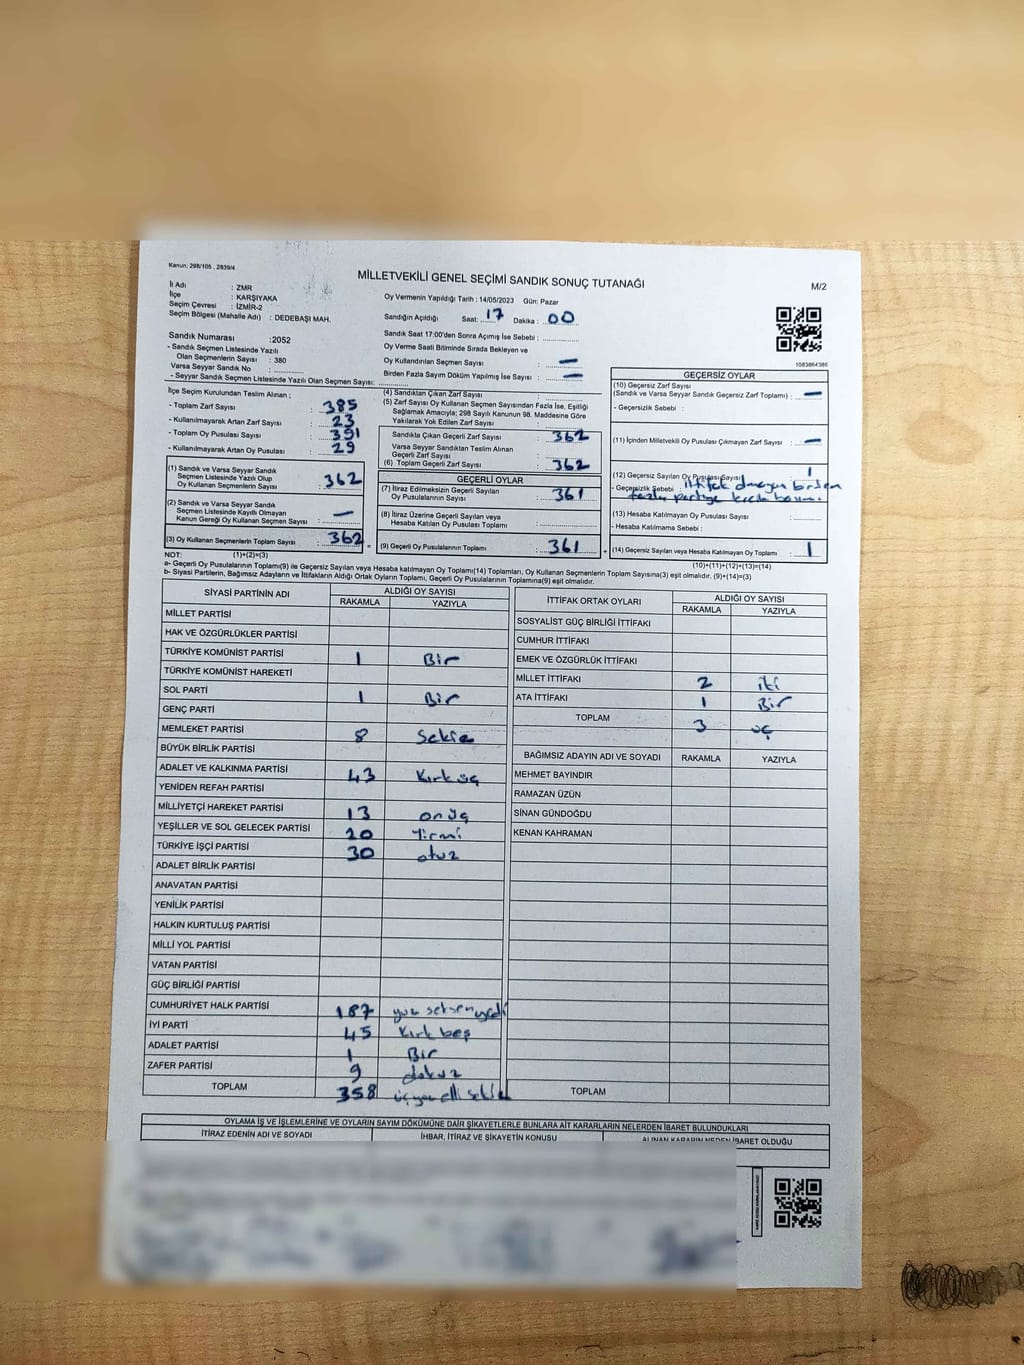 Kanun: 298/105 , 2839/4
MİLLETVEKİLİ GENEL SEÇİMİ SANDIK SONUÇ TUTANAĞI
M/2
İl Adı : ZMR
İlçe : KARŞIYAKA
Seçim Çevresi : İZMİR-2
Seçim Bölgesi (Mahalle Adı) : DEDEBAŞI MAH.
Oy Vermenin Yapıldığı Tarih : 14/05/2023 Gün: Pazar
Sandığın Açıldığı Saat: 17 Dakika : 00
Sandık Saat 17:00'den Sonra Açımış İse Sebebi :
Oy Verme Saati Bitiminde Sırada Bekleyen ve
Oy Kullandırılan Seçmen Sayısı : —
Birden Fazla Sayım Döküm Yapılmış İse Sayısı : —
1083864385
Sandık Numarası :2052
- Sandık Seçmen Listesinde Yazılı
Olan Seçmenlerin Sayısı : 380
Varsa Seyyar Sandık No :
- Seyyar Sandık Seçmen Listesinde Yazılı Olan Seçmen Sayısı:
İlçe Seçim Kurulundan Teslim Alınan ;
- Toplam Zarf Sayısı : 385
- Kullanılmayarak Artan Zarf Sayısı : 23
- Toplam Oy Pusulası Sayısı : 391
- Kullanılmayarak Artan Oy Pusulası : 29
(1) Sandık ve Varsa Seyyar Sandık
Seçmen Listesinde Yazılı Olup
Oy Kullanan Seçmenlerin Sayısı : 362
(2) Sandık ve Varsa Seyyar Sandık
Seçmen Listesinde Kayıtlı Olmayan
Kanun Gereği Oy Kullanan Seçmen Sayısı : —
(3) Oy Kullanan Seçmenlerin Toplam Sayısı : 362
(4) Sandıktan Çıkan Zarf Sayısı :
(5) Zarf Sayısı Oy Kullanan Seçmen Sayısından Fazla İse, Eşitliği
Sağlamak Amacıyla; 298 Sayılı Kanunun 98. Maddesine Göre
Yakılarak Yok Edilen Zarf Sayısı :
Sandıkta Çıkan Geçerli Zarf Sayısı : 362
Varsa Seyyar Sandıktan Teslim Alınan
Geçerli Zarf Sayısı :
(6) Toplam Geçerli Zarf Sayısı : 362
GEÇERLİ OYLAR
(7) İtiraz Edilmeksizin Geçerli Sayılan
Oy Pusulalarının Sayısı : 361
(8) İtiraz Üzerine Geçerli Sayılan veya
Hesaba Katılan Oy Pusulası Toplamı :
= (9) Geçerli Oy Pusulalarının Toplamı : 361
GEÇERSİZ OYLAR
(10) Geçersiz Zarf Sayısı
(Sandık ve Varsa Seyyar Sandık Geçersiz Zarf Toplamı) : —
- Geçersizlik Sebebi :
(11) İçinden Milletvekili Oy Pusulası Çıkmayan Zarf Sayısı : —
(12) Geçersiz Sayılan Oy Pusulası Sayısı : 1
- Geçersizlik Sebebi : ittifak olmayan birden
fazla partiye
(13) Hesaba Katılmayan Oy Pusulası Sayısı :
- Hesaba Katılmama Sebebi :
+ (14) Geçersiz Sayılan veya Hesaba Katılmayan Oy Toplamı : 1
NOT: (1)+(2)=(3)
(10)+(11)+(12)+(13)=(14)
a- Geçerli Oy Pusulalarının Toplamı(9) ile Geçersiz Sayılan veya Hesaba katılmayan Oy Toplamı(14) Toplamları, Oy Kullanan Seçmenlerin Toplam Sayısına(3) eşit olmalıdır. (9)+(14)=(3)
b- Siyasi Partilerin, Bağımsız Adayların ve İttifakların Aldığı Ortak Oyların Toplamı, Geçerli Oy Pusulalarının Toplamına(9) eşit olmalıdır.
SİYASİ PARTİNİN ADI ALDIĞI OY SAYISI
RAKAMLA YAZIYLA
MİLLET PARTİSİ
HAK VE ÖZGÜRLÜKLER PARTİSİ
TÜRKİYE KOMÜNİST PARTİSİ 1 Bir
TÜRKİYE KOMÜNİST HAREKETİ
SOL PARTİ 1 Bir
GENÇ PARTİ
MEMLEKET PARTİSİ 8 Sekiz
BÜYÜK BİRLİK PARTİSİ
ADALET VE KALKINMA PARTİSİ 43 Kırk üç
YENİDEN REFAH PARTİSİ
MİLLİYETÇİ HAREKET PARTİSİ 13 on üç
YEŞİLLER VE SOL GELECEK PARTİSİ 20 Yirmi
TÜRKİYE İŞÇİ PARTİSİ 30 otuz
ADALET BİRLİK PARTİSİ
ANAVATAN PARTİSİ
YENİLİK PARTİSİ
HALKIN KURTULUŞ PARTİSİ
MİLLİ YOL PARTİSİ
VATAN PARTİSİ
GÜÇ BİRLİĞİ PARTİSİ
CUMHURİYET HALK PARTİSİ 187 yüz seksen yedi
İYİ PARTİ 45 Kırk beş
ADALET PARTİSİ 1 Bir
ZAFER PARTİSİ 9 dokuz
TOPLAM 358 üçyüz elli sekiz
İTTİFAK ORTAK OYLARI ALDIĞI OY SAYISI
RAKAMLA YAZIYLA
SOSYALİST GÜÇ BİRLİĞİ İTTİFAKI
CUMHUR İTTİFAKI
EMEK VE ÖZGÜRLÜK İTTİFAKI
MİLLET İTTİFAKI 2 iki
ATA İTTİFAKI 1 Bir
TOPLAM 3 üç
BAĞIMSIZ ADAYIN ADI VE SOYADI RAKAMLA YAZIYLA
MEHMET BAYINDIR
RAMAZAN ÜZÜN
SİNAN GÜNDOĞDU
KENAN KAHRAMAN
TOPLAM
OYLAMA İŞ VE İŞLEMLERİNE VE OYLARIN SAYIM DÖKÜMÜNE DAİR ŞİKAYETLERLE BUNLARA AİT KARARLARIN NELERDEN İBARET BULUNDUKLARI
İTİRAZ EDENİN ADI VE SOYADI İHBAR, İTİRAZ VE ŞİKAYETİN KONUSU ALINAN KARARIN NEDEN İBARET OLDUĞU